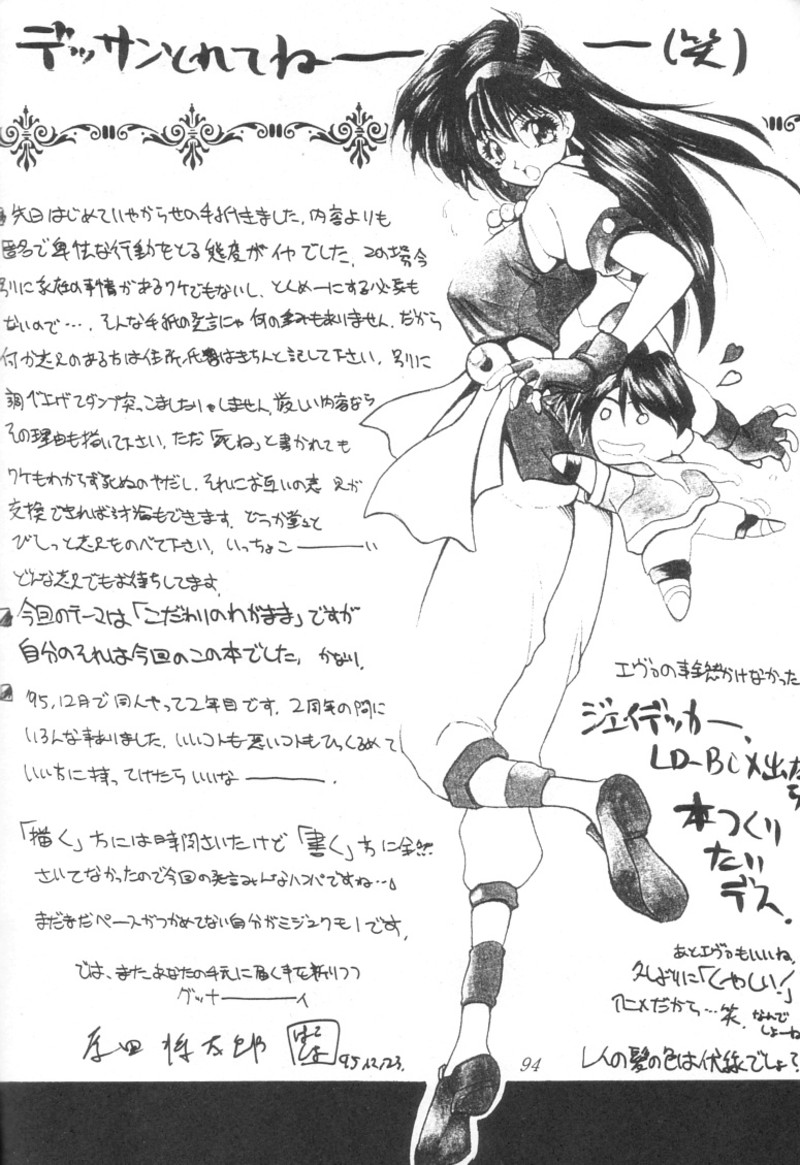 デッサンとれてねーー(笑)
先日はじめていやがらせの手紙がきました。内容よりも
匿名で卑怯な行動をとる態度がイヤでした。この場合
別に家庭の事情があるワケでもないし、とくめーにする必要も
ないので…。そんな手紙の発言にゃ何の重みもありません。だから
何か意見のある方は住所・氏名はきちんと記して下さい。別に
調べ上げてダンプ突っこましたりゃしません。厳しい内容なら
その理由も描いて下さい。ただ「死ね」と書かれても
ワケもわからず死ぬのやだし、それにお互いの意見が
交換できれば対処もできます。どうか堂々と
びしっと意見をのべて下さい。いっちょこーーい
どんな意見でもお待ちしてます。
今回のテーマは「こだわりのわがまま」ですが
自分のそれは今回のこの本でした。かなり。
'95,12月で同人やって2年目です。2周年の間に
いろんな事ありました。いいコトも悪いコトもひっくるめて
いい方に持ってけたらいいなーー。
「描く」方には時間さいたけど「書く」方に全然
さいてなかったので今回の発言みんなハンパですね…。
まだまだペースがつかめてない自分がミジュクモノです。
では、また、あなたの手元に届く事を祈りつつ
グッナーーイ
原田 将太郎
'95,12,23.
エヴァの事全然かけなかった
ジェイデッカー、
LD-BOX出たら
本つくり
たい
デス。
あとエヴァもいいね。
久しぶりに「くやしい!」
アニメだから…笑。なんで
しょーね
レイの髪の色は伏線でしょ?
94